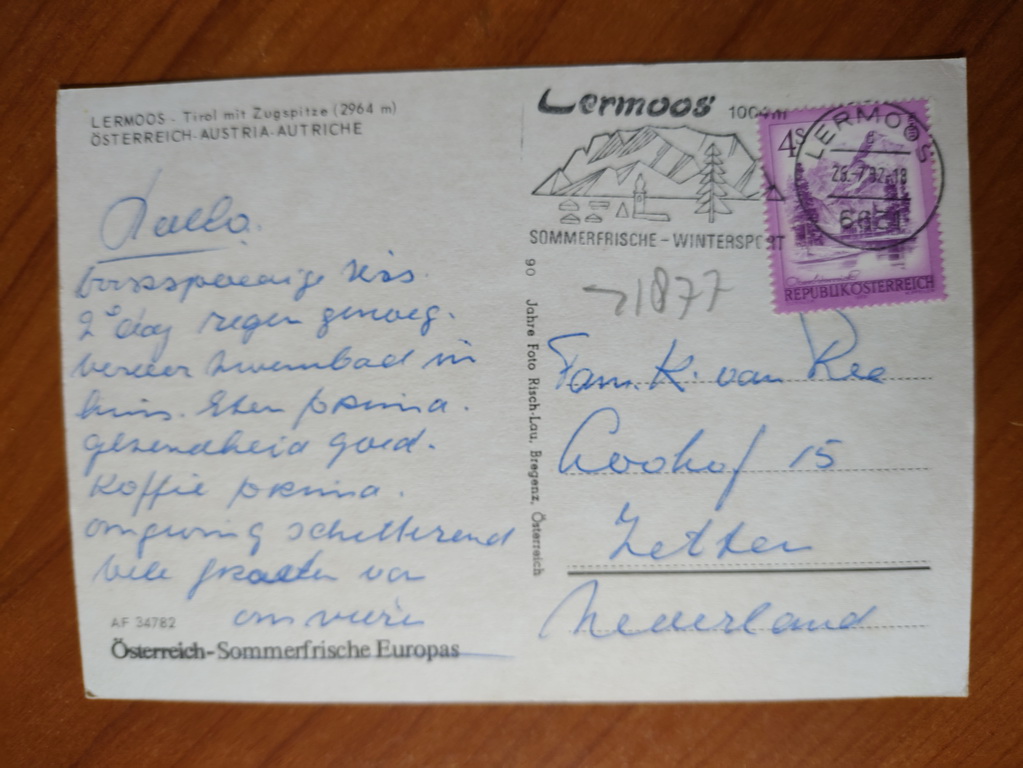 LERMOOS - Tirol mit Zugspitze (2964 m)
ÖSTERREICH-AUSTRIA-AUTRICHE
Hallo.
reis.
2e dag regen genoeg.
verder zwembad in
huis. Eten prima.
gezondheid goed.
Koffie prima.
omgeving schitterend
vele groeten van
AF 34782
Österreich-Sommerfrische Europas
90 Jahre Foto Risch-Lau, Bregenz, Österreich
Lermoos 1004m
SOMMERFRISCHE - WINTERSPORT
4S
REPUBLIK ÖSTERREICH
LERMOOS
1877
Fam. K. van Ree
15
Zetten
Nederland